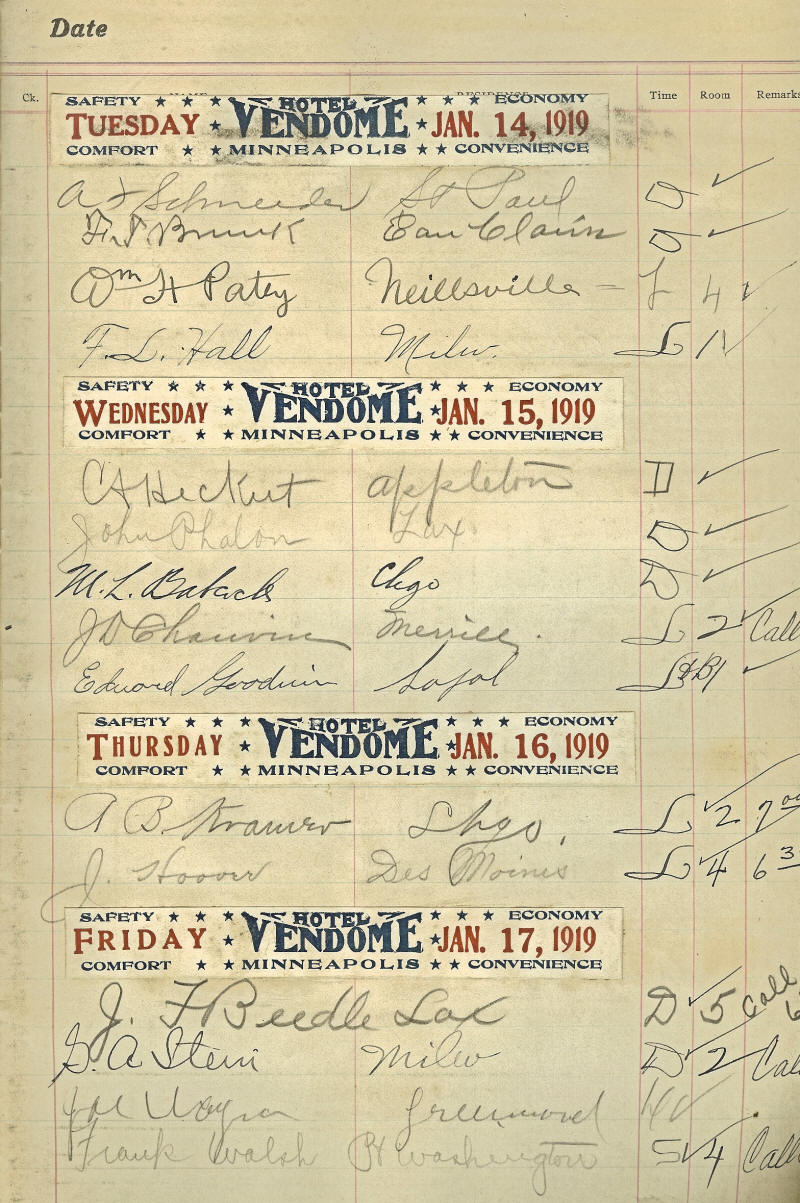 Date
Ck. Time Room Remarks
SAFETY ★ ★ ★ HOTEL ★ ★ ★ ECONOMY
TUESDAY ★ VENDOME ★ JAN. 14, 1919
COMFORT ★ ★ MINNEAPOLIS ★ ★ CONVENIENCE
A F Schneeder St Paul D ✓
F. J. Brunk Eau Claire D ✓
Wm H Patey Neillsville – L 4 ✓
F. L. Hall Milw. L 1 ✓
SAFETY ★ ★ ★ HOTEL ★ ★ ★ ECONOMY
WEDNESDAY ★ VENDOME ★ JAN. 15, 1919
COMFORT ★ ★ MINNEAPOLIS ★ ★ CONVENIENCE
Appleton D ✓
John Phalon Lax. D ✓
M. L. Babcock Chgo D ✓
J D Chauvin Merrill. L 2 ✓ Call
Edward Goodwin L ✓
SAFETY ★ ★ ★ HOTEL ★ ★ ★ ECONOMY
THURSDAY ★ VENDOME ★ JAN. 16, 1919
COMFORT ★ ★ MINNEAPOLIS ★ ★ CONVENIENCE
A B. Kramer Chgo, L ✓ 2 7 00
J. Hoover Des Moines L ✓ 4 6 3
SAFETY ★ ★ ★ HOTEL ★ ★ ★ ECONOMY
FRIDAY ★ VENDOME ★ JAN. 17, 1919
COMFORT ★ ★ MINNEAPOLIS ★ ★ CONVENIENCE
J. F Beedle Lax D ✓ 5 Call 6
G. A Stein Milw D ✓ 2 Call
Greenwood
Frank Walsh Pt Washington S ✓ 4 Call